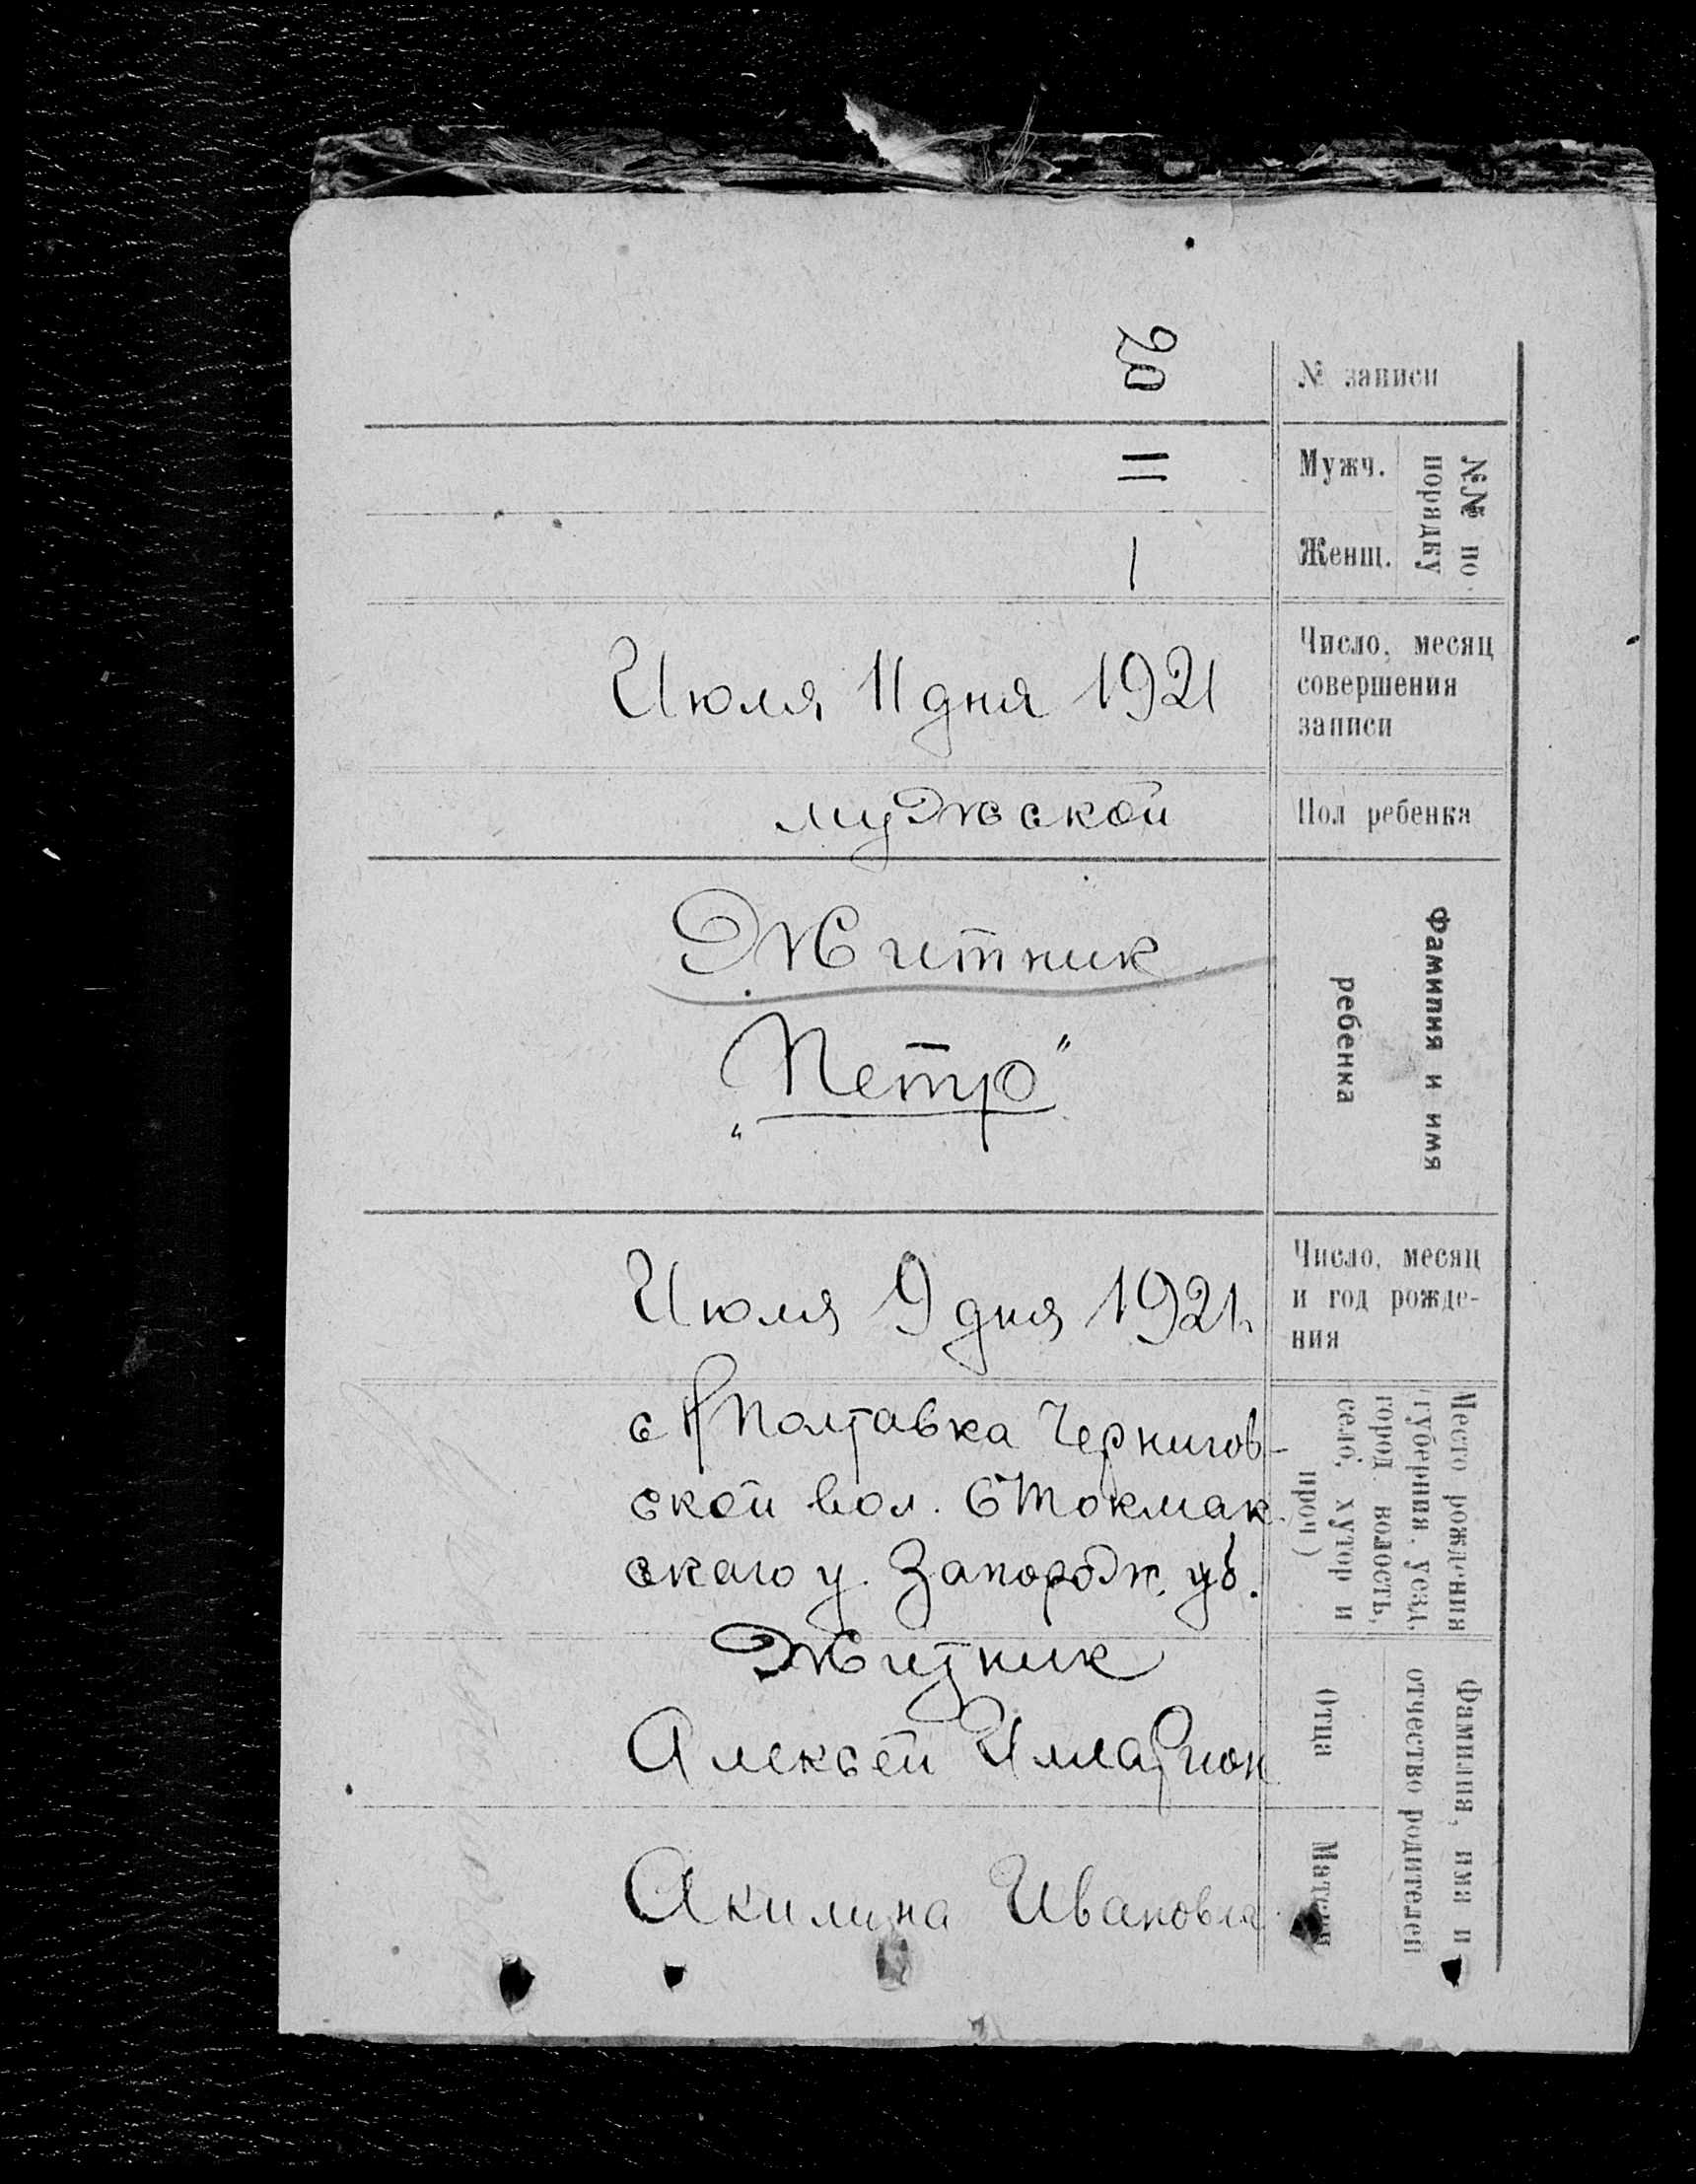 № записи
20
№№ по порядку
Мужч.
11
Женщ.
Число, месяц
совершения
записи
Июля 11 дня 1921
Пол ребенка
мужской
Фамилия и имя
ребенка
Житник
„Петр"
Число, месяц
и год рожде-
ния
Июля 9 дня 1921г.
Место рождения
(губерния, уезд,
город волость,
село, хутор и
проч)
Полтавка Чернигов-
ской вол. Б Токмак
скаго у. Запорож. губ.
Фамилия, имя и
отчество родителей
Отца
Житник
Алексей Илларион
Матери
Акилина Ивановна